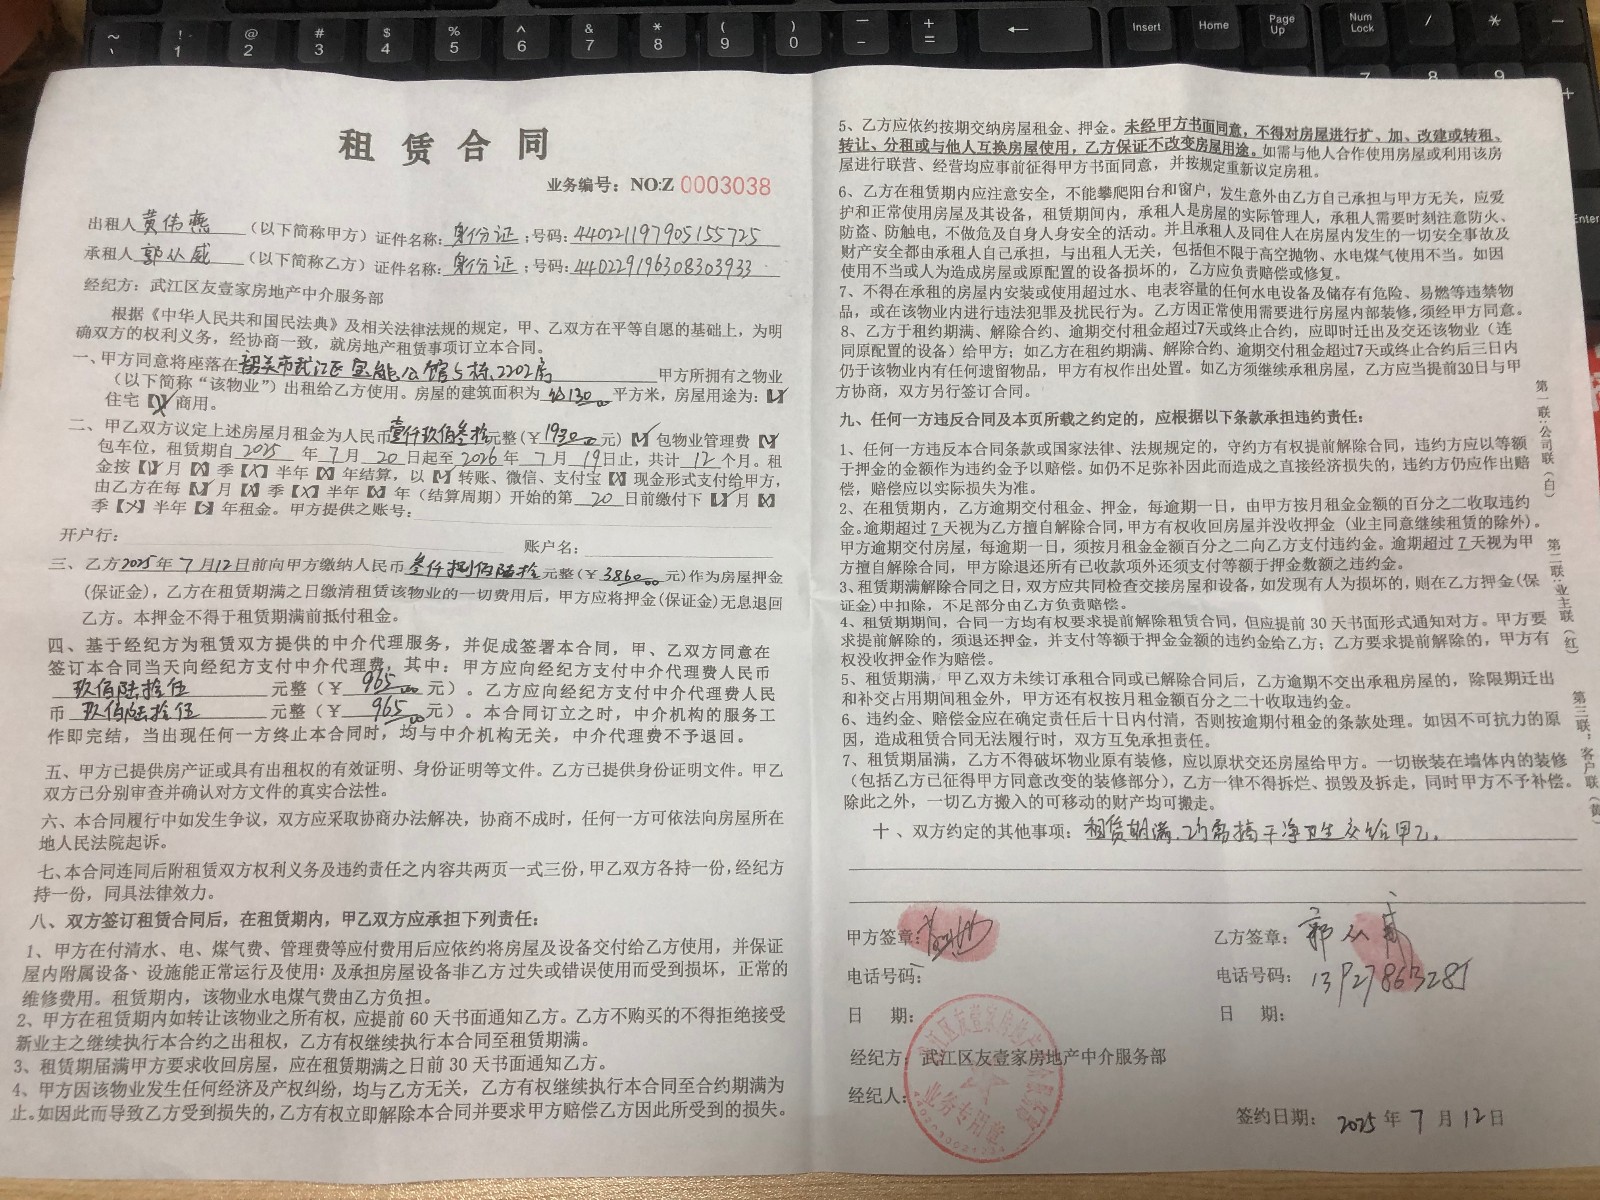 租 赁 合 同
业务编号：NO:Z 0003038
出租人黄伟燕（以下简称甲方）证件名称：身份证；号码：440221197905155725
承租人郭从威（以下简称乙方）证件名称：身份证；号码：440229196308303933
经纪方：武江区友壹家房地产中介服务部
根据《中华人民共和国民法典》及相关法律法规的规定，甲、乙双方在平等自愿的基础上，为明
确双方的权利义务，经协商一致，就房地产租赁事项订立本合同。
一、甲方同意将座落在韶关市武江区宝能公馆5栋2202房 甲方所拥有之物业
（以下简称“该物业”）出租给乙方使用。房屋的建筑面积为 130.00 平方米，房屋用途为：【✓】
住宅【╳】商用。
二、甲乙双方议定上述房屋月租金为人民币壹仟玖佰叁拾元整(￥1930.00元)【✓】包物业管理费【✓】
包车位，租赁期自2025年7月20日起至2026年7月19日止，共计12个月。租
金按【✓】月【╳】季【╳】半年【╳】年结算，以【✓】转账、微信、支付宝【╳】现金形式支付给甲方，
由乙方在每【✓】月【╳】季【╳】半年【╳】年（结算周期）开始的第20日前缴付下【✓】月【╳】
季【╳】半年【╳】年租金。甲方提供之账号：
开户行： 账户名：
三、乙方2025年7月12日前向甲方缴纳人民币叁仟捌佰陆拾元整(￥3860.00元)作为房屋押金
(保证金)，乙方在租赁期满之日缴清租赁该物业的一切费用后，甲方应将押金(保证金)无息退回
乙方。本押金不得于租赁期满前抵付租金。
四、基于经纪方为租赁双方提供的中介代理服务，并促成签署本合同，甲、乙双方同意在
签订本合同当天向经纪方支付中介代理费，其中：甲方应向经纪方支付中介代理费人民币
玖佰陆拾伍元整（￥965.00元）。乙方应向经纪方支付中介代理费人民
币玖佰陆拾伍元整（￥965.00元）。本合同订立之时，中介机构的服务工
作即完结，当出现任何一方终止本合同时，均与中介机构无关，中介代理费不予退回。
五、甲方已提供房产证或具有出租权的有效证明、身份证明等文件。乙方已提供身份证明文件。甲乙
双方已分别审查并确认对方文件的真实合法性。
六、本合同履行中如发生争议，双方应采取协商办法解决，协商不成时，任何一方可依法向房屋所在
地人民法院起诉。
七、本合同连同后附租赁双方权利义务及违约责任之内容共两页一式三份，甲乙双方各持一份，经纪方
持一份，同具法律效力。
八、双方签订租赁合同后，在租赁期内，甲乙双方应承担下列责任：
1、甲方在付清水、电、煤气费、管理费等应付费用后应依约将房屋及设备交付给乙方使用，并保证
屋内附属设备、设施能正常运行及使用；及承担房屋设备非乙方过失或错误使用而受到损坏，正常的
维修费用。租赁期内，该物业水电煤气费由乙方负担。
2、甲方在租赁期内如转让该物业之所有权，应提前 60 天书面通知乙方。乙方不购买的不得拒绝接受
新业主之继续执行本合约之出租权，乙方有权继续执行本合同至租赁期满。
3、租赁期届满甲方要求收回房屋，应在租赁期满之日前 30 天书面通知乙方。
4、甲方因该物业发生任何经济及产权纠纷，均与乙方无关，乙方有权继续执行本合同至合约期满为
止。如因此而导致乙方受到损失的，乙方有权立即解除本合同并要求甲方赔偿乙方因此所受到的损失。
5、乙方应依约按期交纳房屋租金、押金。未经甲方书面同意，不得对房屋进行扩、加、改建或转租、
转让、分租或与他人互换房屋使用，乙方保证不改变房屋用途。如需与他人合作使用房屋或利用该房
屋进行联营、经营均应事前征得甲方书面同意，并按规定重新议定房租。
6、乙方在租赁期内应注意安全，不能攀爬阳台和窗户，发生意外由乙方自己承担与甲方无关，应爱
护和正常使用房屋及其设备，租赁期间内，承租人是房屋的实际管理人，承租人需要时刻注意防火、
防盗、防触电，不做危及自身人身安全的活动。并且承租人及同住人在房屋内发生的一切安全事故及
财产安全都由承租人自己承担，与出租人无关，包括但不限于高空抛物、水电煤气使用不当。如因
使用不当或人为造成房屋或原配置的设备损坏的，乙方应负责赔偿或修复。
7、不得在承租的房屋内安装或使用超过水、电表容量的任何水电设备及储存有危险、易燃等违禁物
品，或在该物业内进行违法犯罪及扰民行为。乙方因正常使用需要进行房屋内部装修，须经甲方同意。
8、乙方于租约期满、解除合约、逾期交付租金超过7天或终止合约，应即时迁出及交还该物业（连
同原配置的设备）给甲方；如乙方在租约期满、解除合约、逾期交付租金超过7天或终止合约后三日内
仍于该物业内有任何遗留物品，甲方有权作出处置。如乙方须继续承租房屋，乙方应当提前30日与甲
方协商，双方另行签订合同。
九、任何一方违反合同及本页所载之约定的，应根据以下条款承担违约责任：
1、任何一方违反本合同条款或国家法律、法规规定的，守约方有权提前解除合同，违约方应以等额
于押金的金额作为违约金予以赔偿。如仍不足弥补因此而造成之直接经济损失的，违约方仍应作出赔
偿，赔偿应以实际损失为准。
2、在租赁期内，乙方逾期交付租金、押金，每逾期一日，由甲方按月租金金额的百分之二收取违约
金。逾期超过 7 天视为乙方擅自解除合同，甲方有权收回房屋并没收押金（业主同意继续租赁的除外）。
甲方逾期交付房屋，每逾期一日，须按月租金金额百分之二向乙方支付违约金。逾期超过 7 天视为甲
方擅自解除合同，甲方除退还所有已收款项外还须支付等额于押金数额之违约金。
3、租赁期满解除合同之日，双方应共同检查交接房屋和设备，如发现有人为损坏的，则在乙方押金(保
证金)中扣除，不足部分由乙方负责赔偿。
4、租赁期期间，合同一方均有权要求提前解除租赁合同，但应提前 30 天书面形式通知对方。甲方要
求提前解除的，须退还押金，并支付等额于押金金额的违约金给乙方；乙方要求提前解除的，甲方有
权没收押金作为赔偿。
5、租赁期满，甲乙双方未续订承租合同或已解除合同后，乙方逾期不交出承租房屋的，除限期迁出
和补交占用期间租金外，甲方还有权按月租金额百分之二十收取违约金。
6、违约金、赔偿金应在确定责任后十日内付清，否则按逾期付租金的条款处理。如因不可抗力的原
因，造成租赁合同无法履行时，双方互免承担责任。
7、租赁期届满，乙方不得破坏物业原有装修，应以原状交还房屋给甲方。一切嵌装在墙体内的装修
（包括乙方已征得甲方同意改变的装修部分），乙方一律不得拆烂、损毁及拆走，同时甲方不予补偿。
除此之外，一切乙方搬入的可移动的财产均可搬走。
十、双方约定的其他事项：租赁期满，乙方需搞干净卫生交给甲方。
第一联：公司联（白）
第二联：业主联（红）
第三联：客户联（黄）
甲方签章： 乙方签章：郭从威
电话号码： 电话号码：13927863285
日 期： 日 期：
经纪方：武江区友壹家房地产中介服务部
经纪人：
签约日期：2025年7月12日
武江区友壹家房地产中介服务部
业务专用章
~ ! @ # $ % ^ & * ( ) — +
、 1 2 3 4 5 6 7 8 9 0 - =
Insert Home Page Up Num Lock / * -
7 8 9 +
Enter